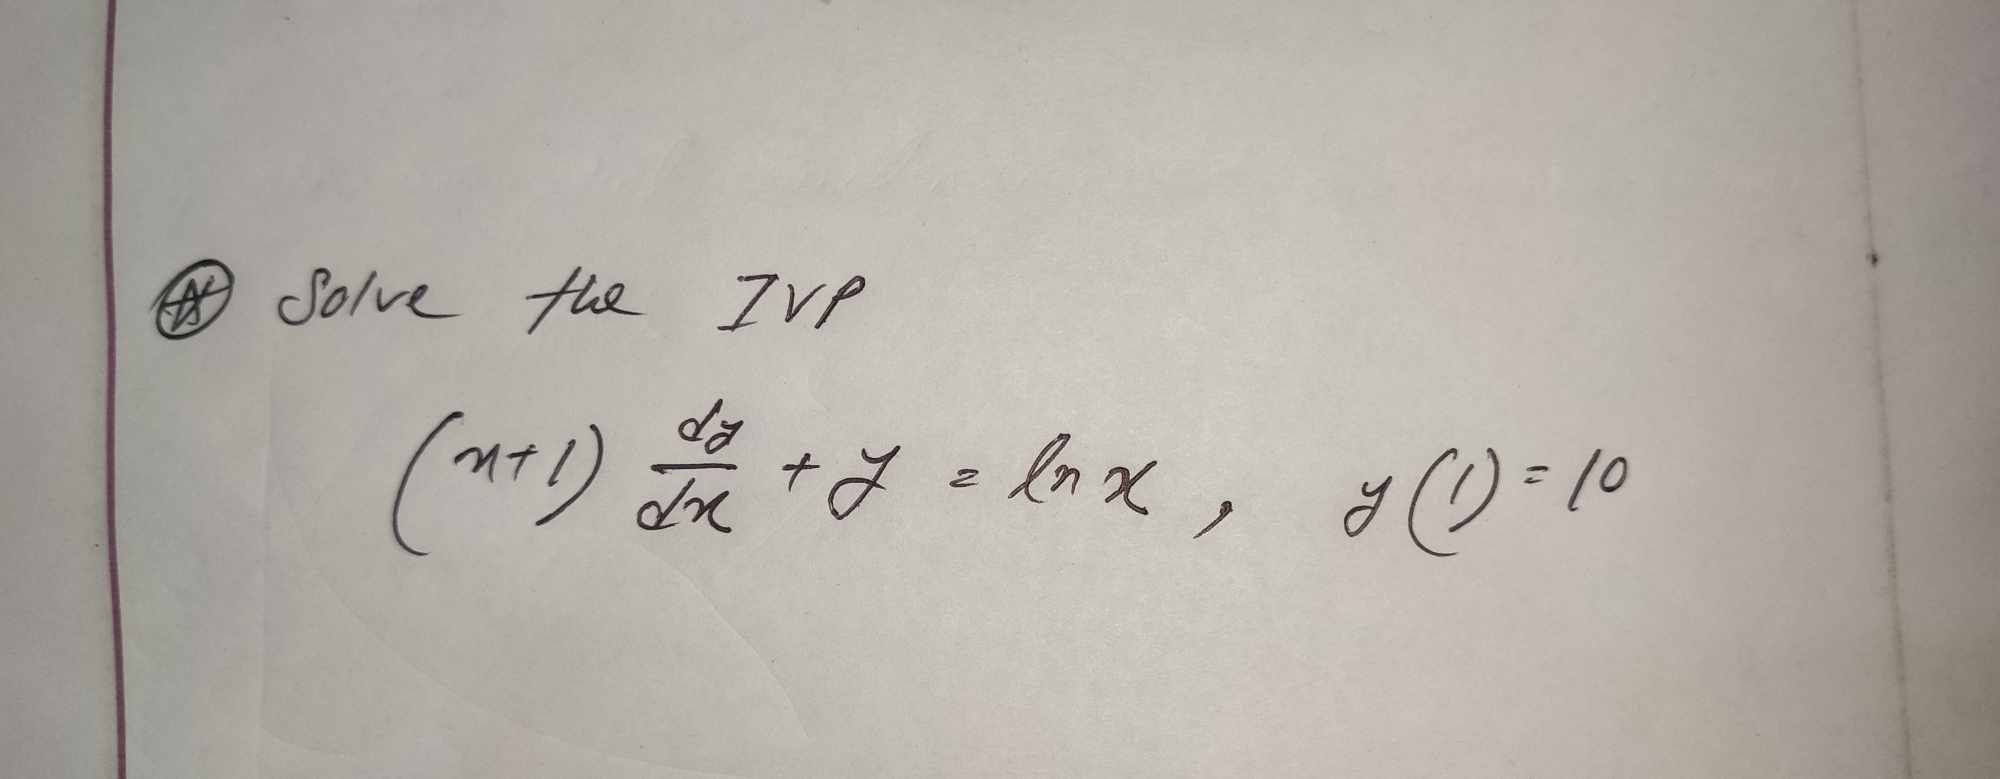 Solve the IVP
(x+1) dy/dx + y = ln x, y(1) = 10